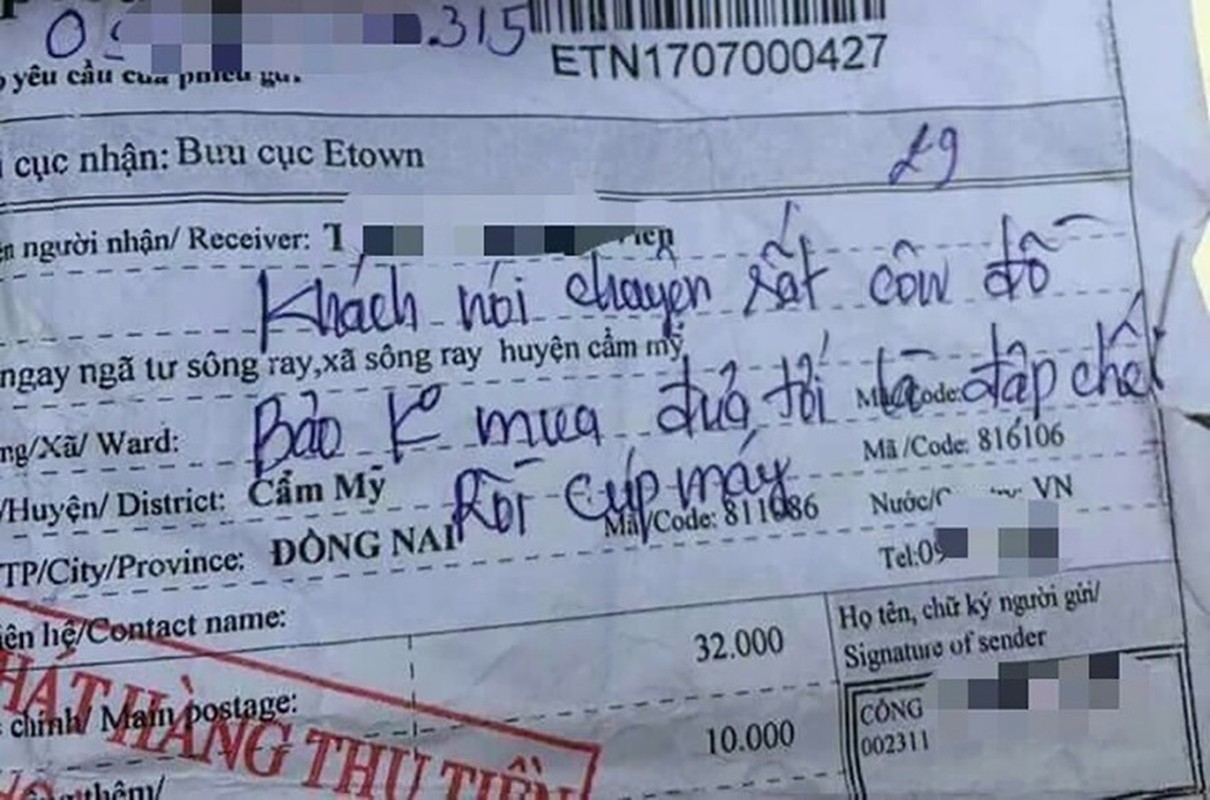 .315
ETN1707000427
yêu cầu của phiếu gửi.
cục nhận: Bưu cục Etown
29
người nhận/ Receiver: T
Khách nói chuyện rất côn đồ
ngay ngã tư sông ray,xã sông ray huyện cẩm mỹ
Bảo K° mua đưa tới là đập chết
Mã/Code:
ng/Xã/ Ward:
Mã /Code: 816106
Rồi cúp máy
/Huyện/ District: Cẩm Mỹ
Mã/Code: 811086
Nước/C VN
TP/City/Province: ĐỒNG NAI
Tel:09
iên hệ/Contact name:
32.000
Họ tên, chữ ký người gửi/
Signature of sender
HÁT HÀNG THU TIỀN
chính/ Main postage:
10.000
CÔNG
002311
thêm/